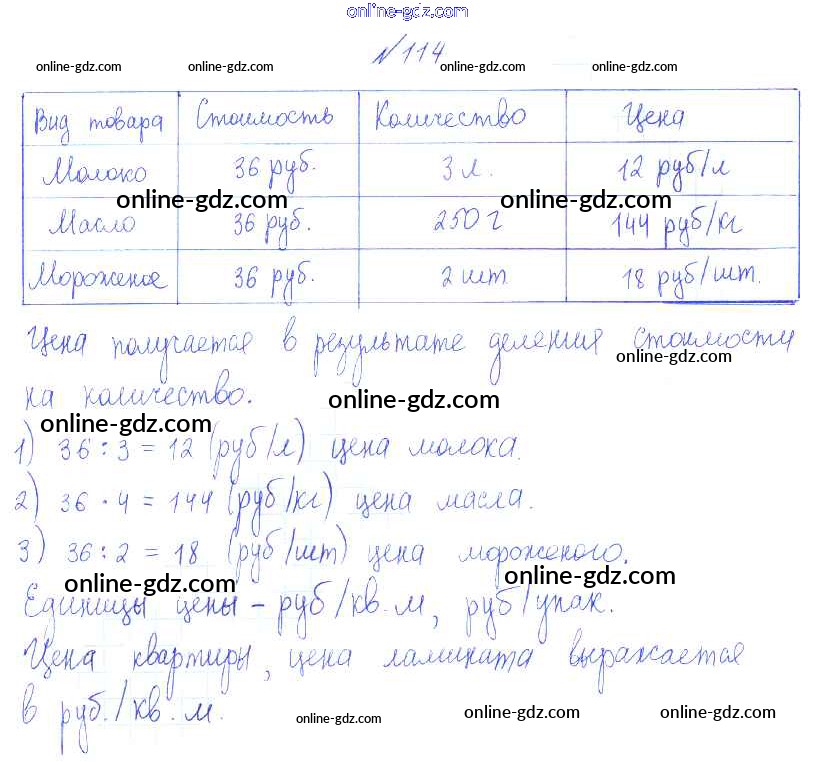 online-gdz.com
№114
online-gdz.com online-gdz.com online-gdz.com online-gdz.com
Вид товара Стоимость Количество Цена
Молоко 36 руб. 3 л. 12 руб/л
online-gdz.com online-gdz.com
Масло 36 руб. 250 г 144 руб/кг
Мороженое 36 руб. 2 шт 18 руб/шт.
Цена получается в результате деления стоимости
online-gdz.com
на количество.
online-gdz.com
online-gdz.com
1) 36 : 3 = 12 (руб/л) цена молока.
2) 36 · 4 = 144 (руб/кг) цена масла.
3) 36 : 2 = 18 (руб/шт) цена мороженого.
online-gdz.com online-gdz.com
Единицы цены – руб/кв.м, руб/упак.
Цена квартиры, цена ламината выражается
в руб./кв.м.
online-gdz.com online-gdz.com online-gdz.com